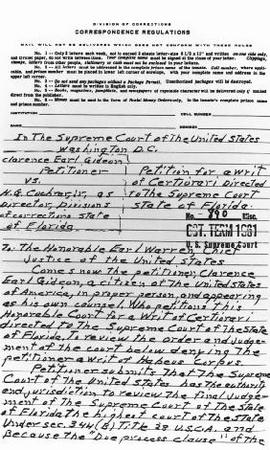 DIVISION OF CORRECTIONS
CORRESPONDENCE REGULATIONS
MAIL WILL NOT BE DELIVERED WHICH DOES NOT CONFORM WITH THESE RULES
No. 1 -- Only 2 letters each week, not to exceed 2 sheets letter-size 8 1/2 x 11" and written on one side only,
and if ruled paper, do not write between lines. Your complete name must be signed at the close of your letter. Clippings,
stamps, letters from other people, stationery or cash must not be enclosed in your letters.
No. 2 -- All letters must be addressed in the complete prison name of the inmate. Cell number, where applicable,
and prison number must be placed in lower left corner of envelope, with your complete name and address in the
upper left corner.
No. 3 -- Do not send any packages without a Package Permit. Unauthorized packages will be destroyed.
No. 4 -- Letters must be written in English only.
No. 5 -- Books, magazines, pamphlets, and newspapers of reputable character will be delivered only if mailed
direct from the publisher.
No. 6 -- Money must be sent in the form of Postal Money Orders only, in the inmate's complete prison name
and prison number.
INSTITUTION
CELL NUMBER
NAME
NUMBER
In The Supreme Court of The United States
Washington D.C.
Clarence Earl Gideon
Petitioner
vs.
H.G. Cochran, Jr., as
Director, Divisions
of corrections State
of Florida
Petition for a Writ
of Certiorari Directed
to The Supreme Court
State of Florida.
No. 890 Misc.
OCT. TERM 1961
U. S. Supreme Court
To: The Honorable Earl Warren, Chief
Justice of the United States
Comes now the petitioner, Clarence
Earl Gideon, a citizen of The United States
of America, in proper person, and appearing
as his own counsel. Who petitions this
Honorable Court for a Writ of Certiorari
directed to The Supreme Court of The State
of Florida, To review the order and Judge-
ment of the court below denying The
petitioner a writ of Habeus Corpus.
Petitioner submits That The Supreme
Court of The United States has The authority
and jurisdiction to review the final Judge-
ment of The Supreme Court of The State
of Florida the highest court of The State
Under sec. 344(B) Title 28 U.S.C.A. and
Because the "Due process clause" of the